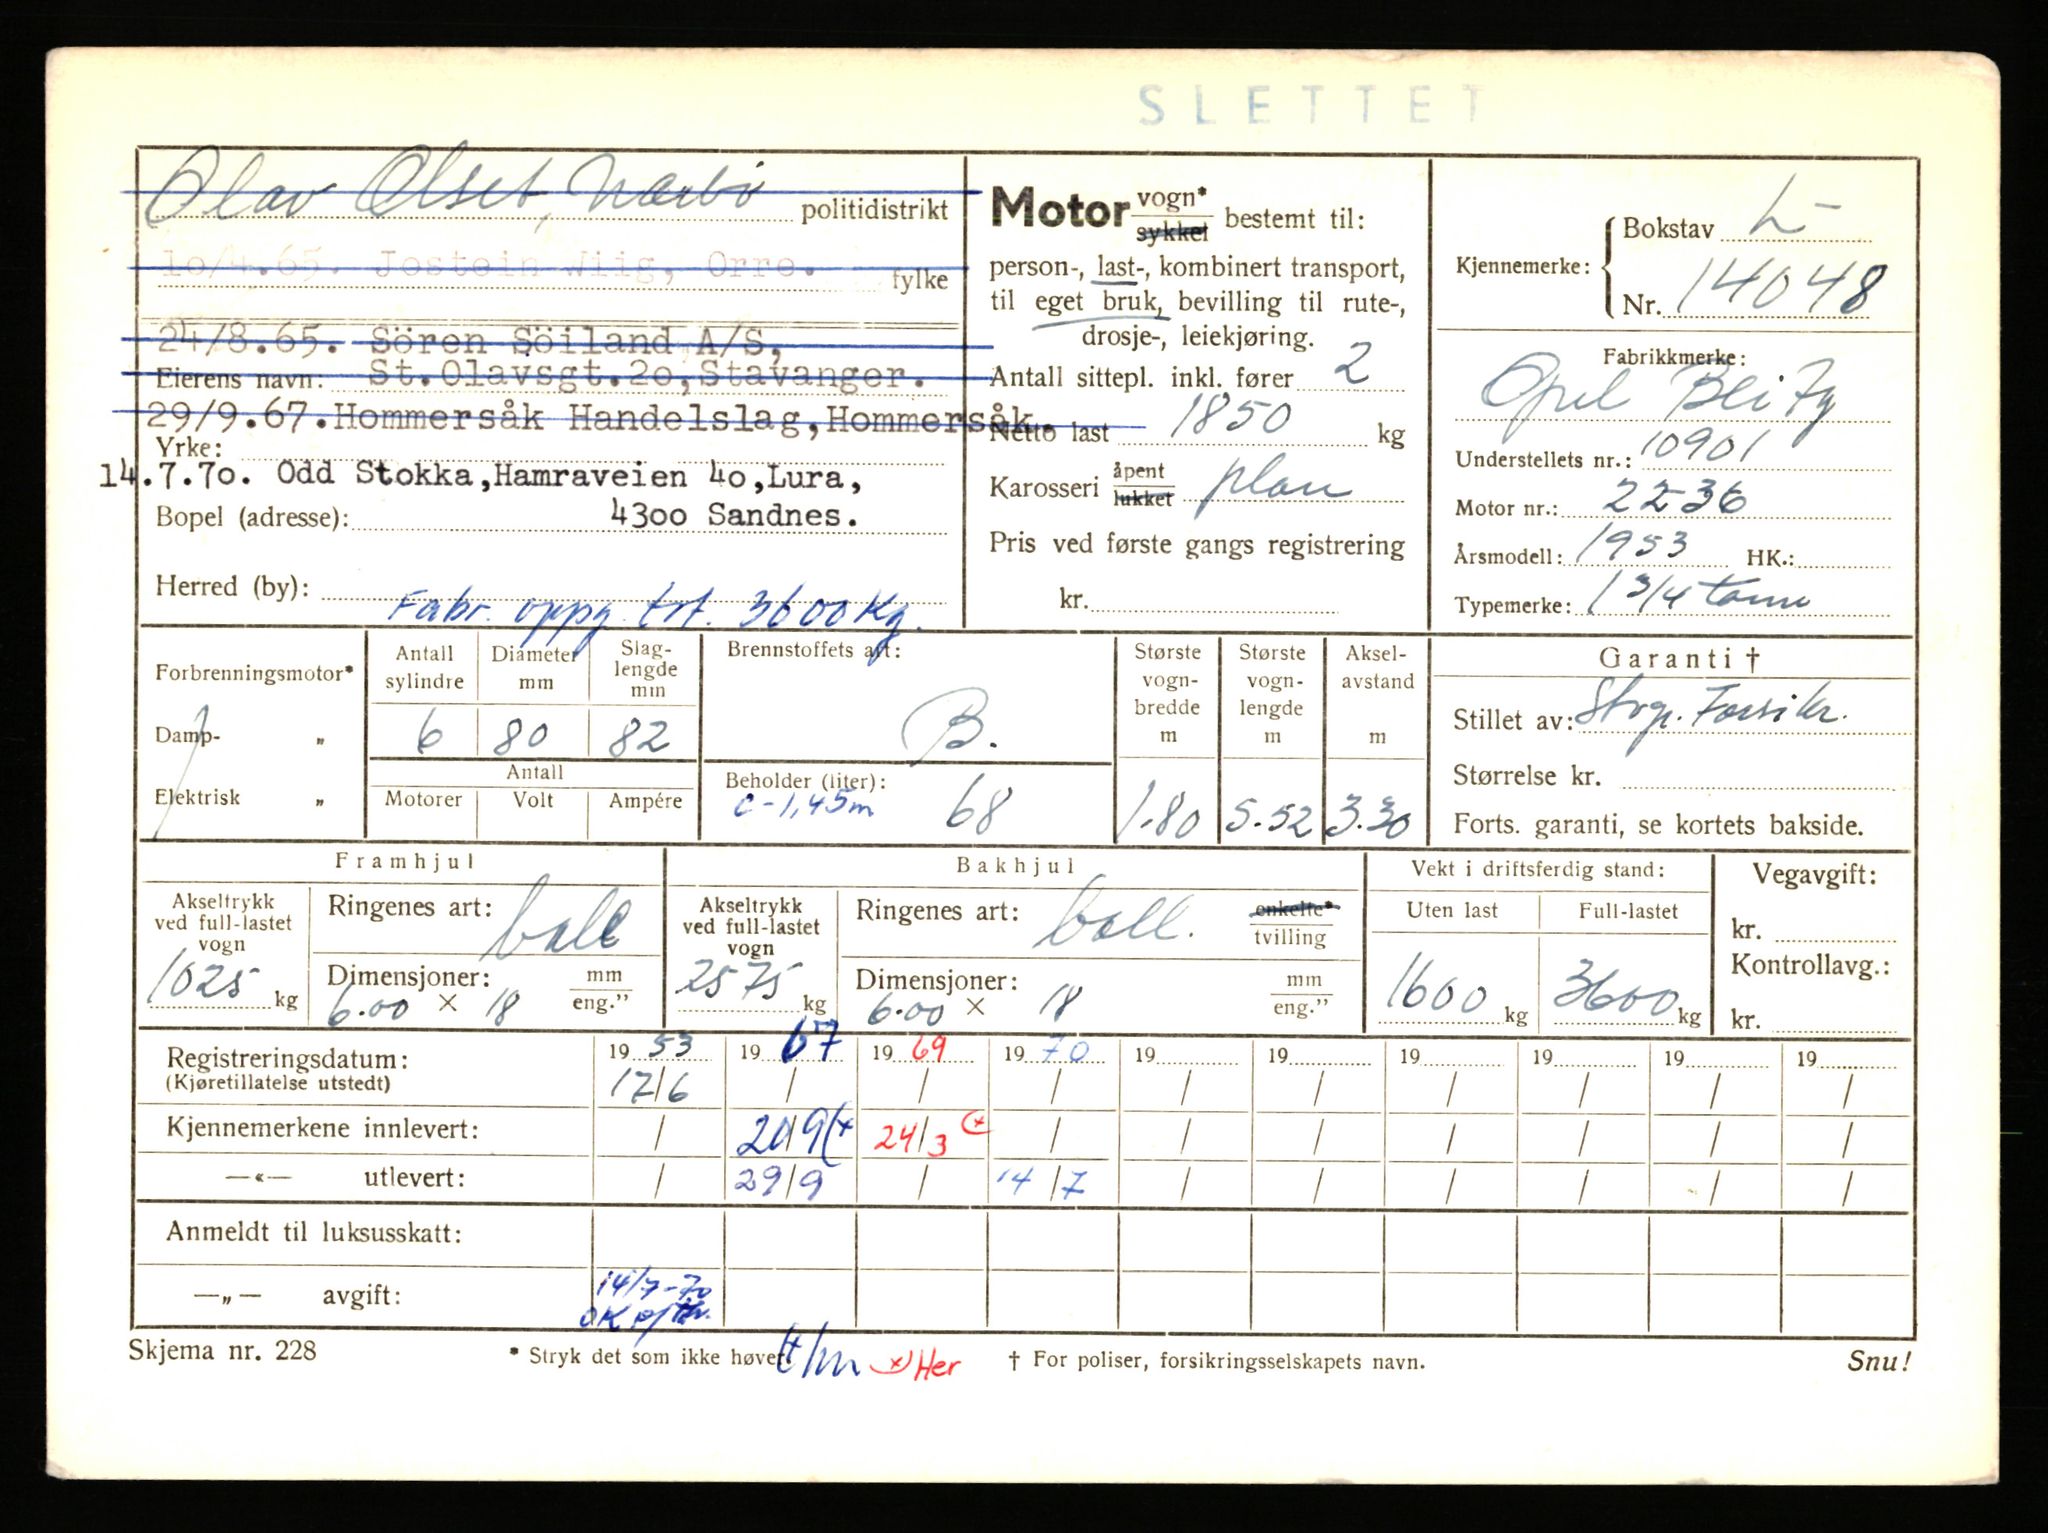 SLETTET
Olav Olset, Nærbø politidistrikt
10/4.65. Jostein Wiig, Orre.
fylke
24/8.65. Sören Söiland A/S,
Eierens navn: St.Olavsgt.20,Stavanger.
29/9.67.Hommersåk Handelslag,Hommersåk.
Yrke:
14.7.70. Odd Stokka,Hamraveien 40,Lura,
Bopel (adresse): 4300 Sandnes.
Herred (by):
Fabr. oppg. trt. 3600 Kg.
Motor vogn* sykkel bestemt til:
person-, last-, kombinert transport,
til eget bruk, bevilling til rute-,
drosje-, leiekjøring.
Antall sittepl. inkl. fører 2
Netto last 1850 kg
Karosseri åpent lukket plan
Pris ved første gangs registrering
kr.
Kjennemerke: Bokstav L-
Nr. 14048
Fabrikkmerke:
Opel Blitz
Understellets nr.: 10901
Motor nr.: 2236
Årsmodell: 1953 HK.:
Typemerke: 1 3/4 tonn
Forbrenningsmotor*
Damp- „
Elektrisk „
Antall sylindre
Diameter mm
Slaglengde mm
6 80 82
Antall
Motorer Volt Ampére
Brennstoffets art:
B.
Beholder (liter):
C-1,45m 68
Største vognbredde m
1.80
Største vognlengde m
5.52
Akselavstand m
3.30
Garanti †
Stillet av: Stvgr. Forsikr.
Størrelse kr.
Forts. garanti, se kortets bakside.
Framhjul
Akseltrykk ved full-lastet vogn
1025 kg
Ringenes art: ball
Dimensjoner: mm
6.00 × 18 eng.”
Bakhjul
Akseltrykk ved full-lastet vogn
2575 kg
Ringenes art: ball. enkelte* tvilling
Dimensjoner: mm
6.00 × 18 eng.”
Vekt i driftsferdig stand:
Uten last Full-lastet
1600 kg 3600 kg
Vegavgift:
kr.
Kontrollavg.:
kr.
Registreringsdatum: 19 53 19 67 19 69 19 70 19 19 19 19 19 19
(Kjøretillatelse utstedt) 17/6 / / / / / / / / /
Kjennemerkene innlevert: / 20/9 (x 24/3 (x / / / / / / /
—«— utlevert: / 29/9 / 14/7 / / / / / /
Anmeldt til luksusskatt:
—„— avgift: 14/7-70
OK
Skjema nr. 228
* Stryk det som ikke høver.
x) Her
† For poliser, forsikringsselskapets navn.
Snu!